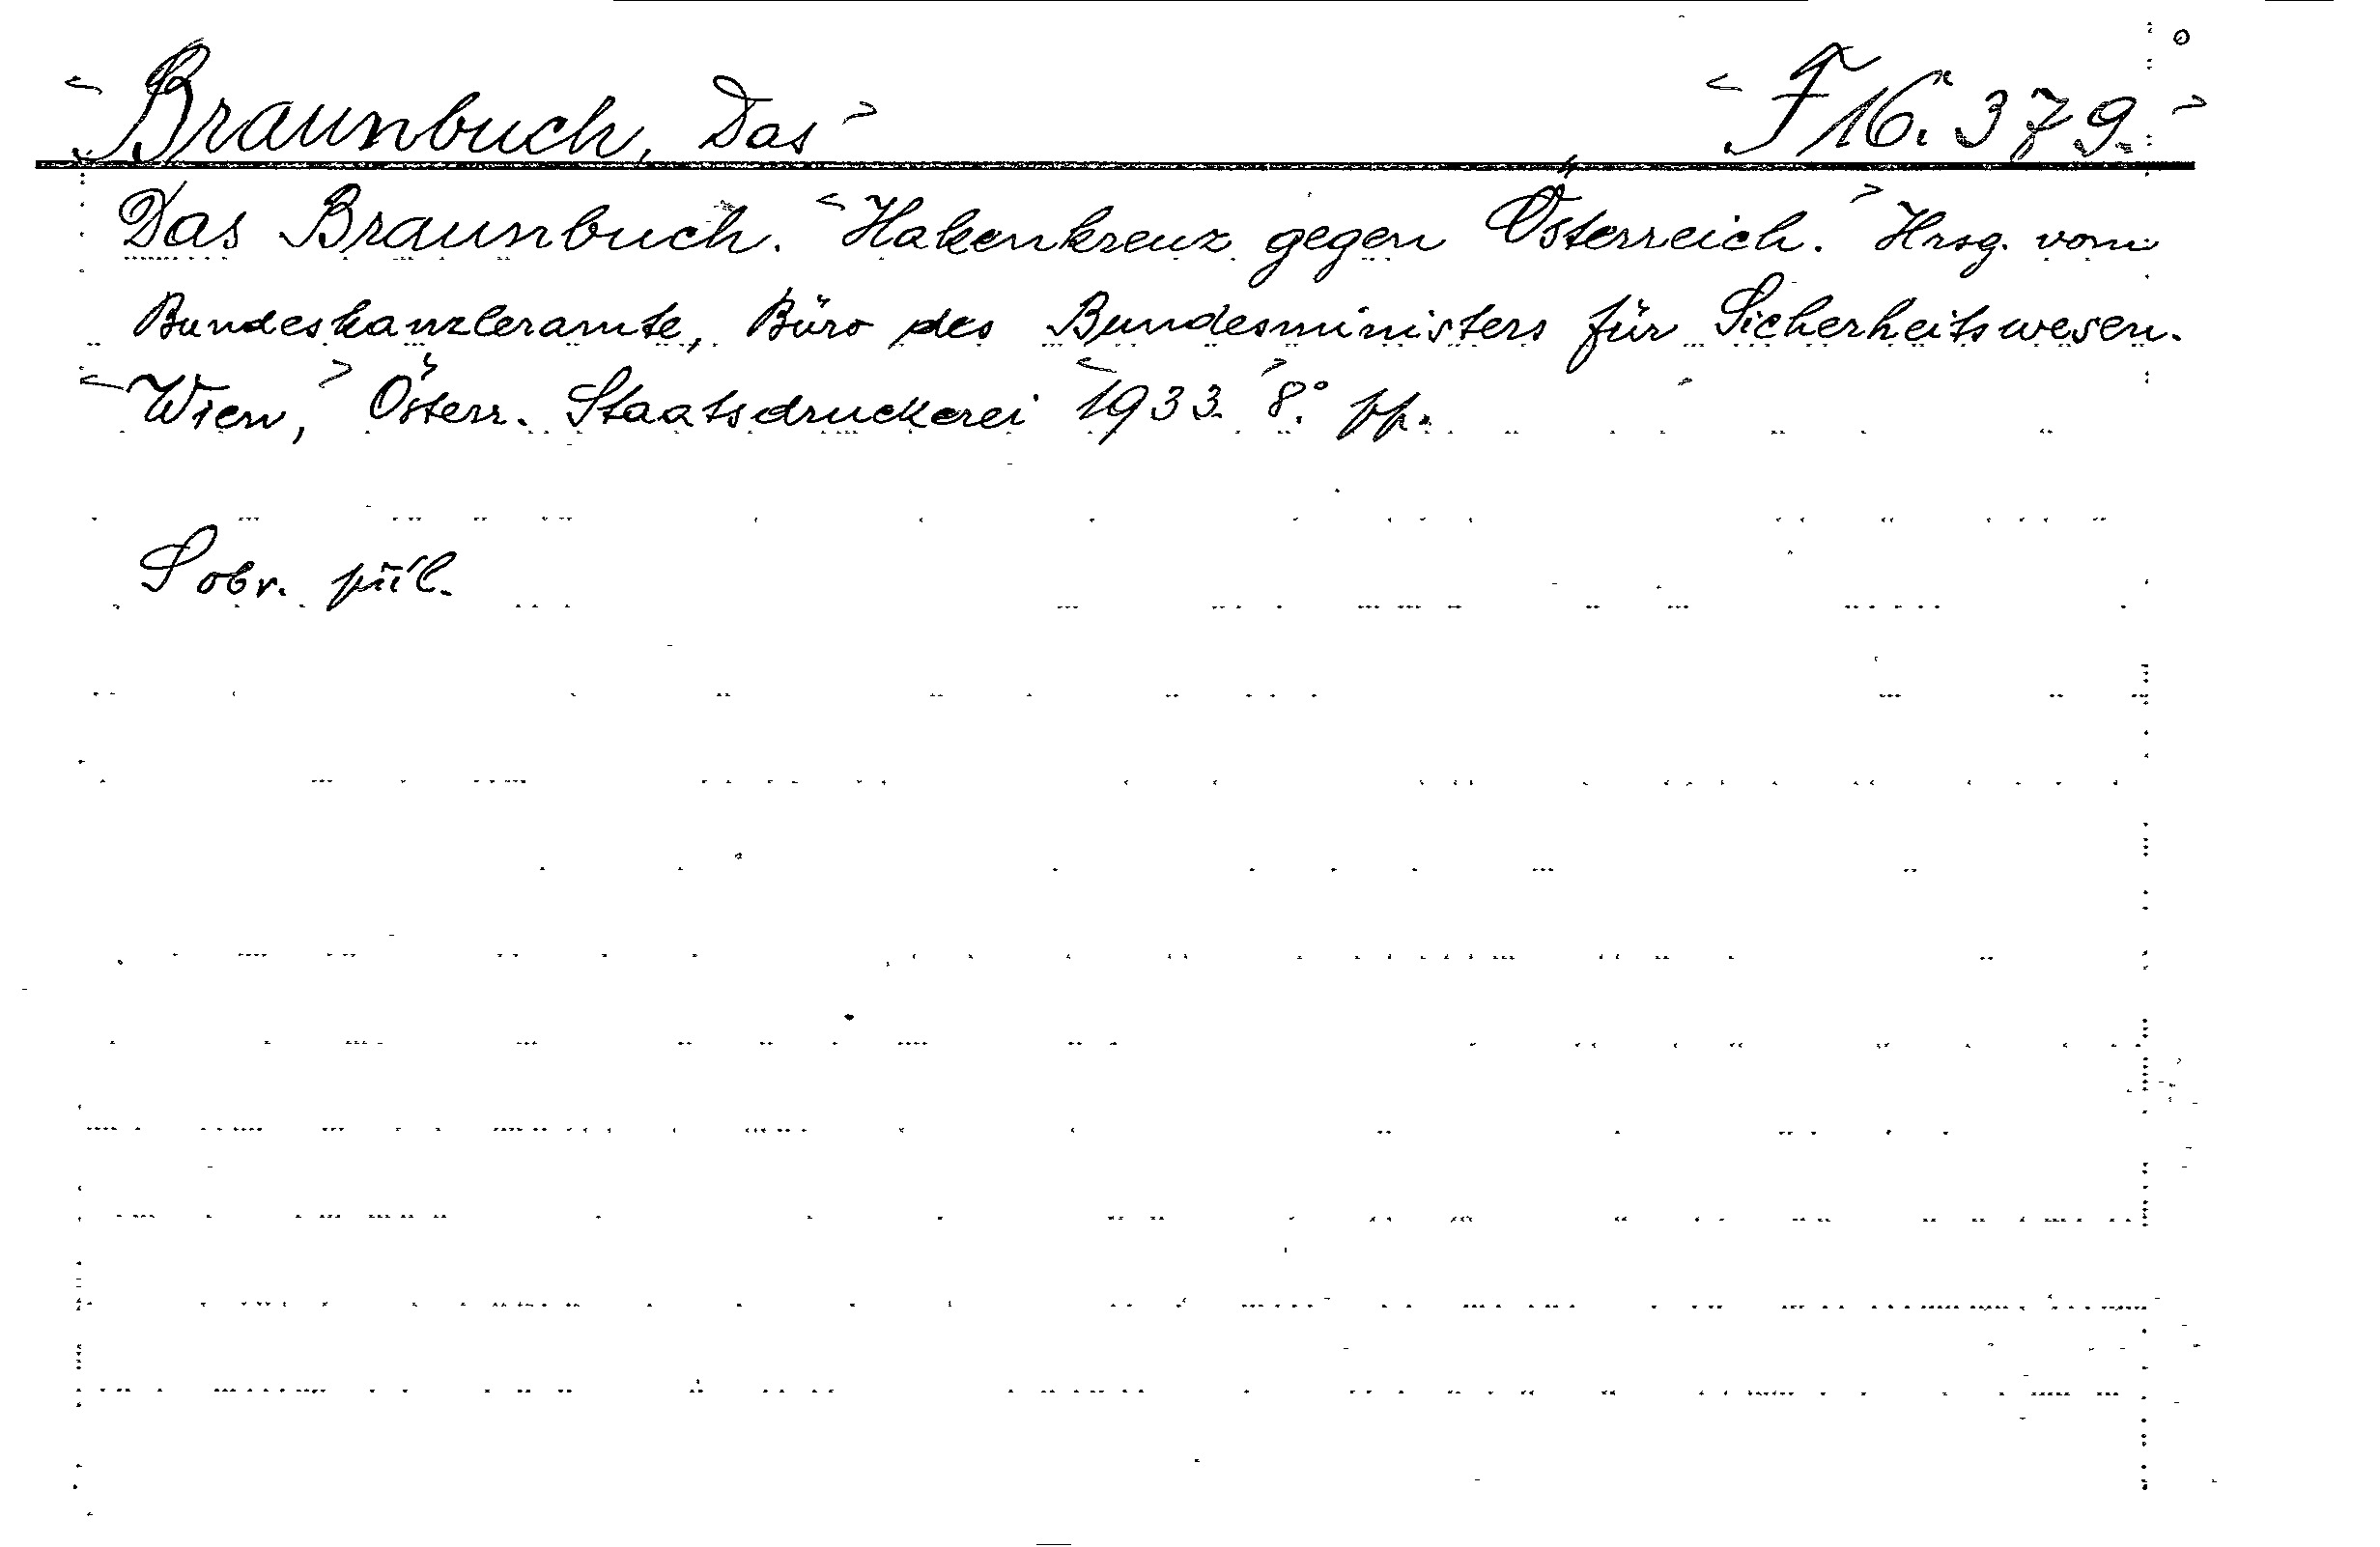 Braunbuch, Das F 16.379.
Das Braunbuch. Hakenkreuz gegen Österreich. Hrsg. vom
Bundeskanzleramte, Büro des Bundesministers für Sicherheitswesen.
Wien, Österr. Staatsdruckerei 1933. 8.° pp.
S obr. příl.